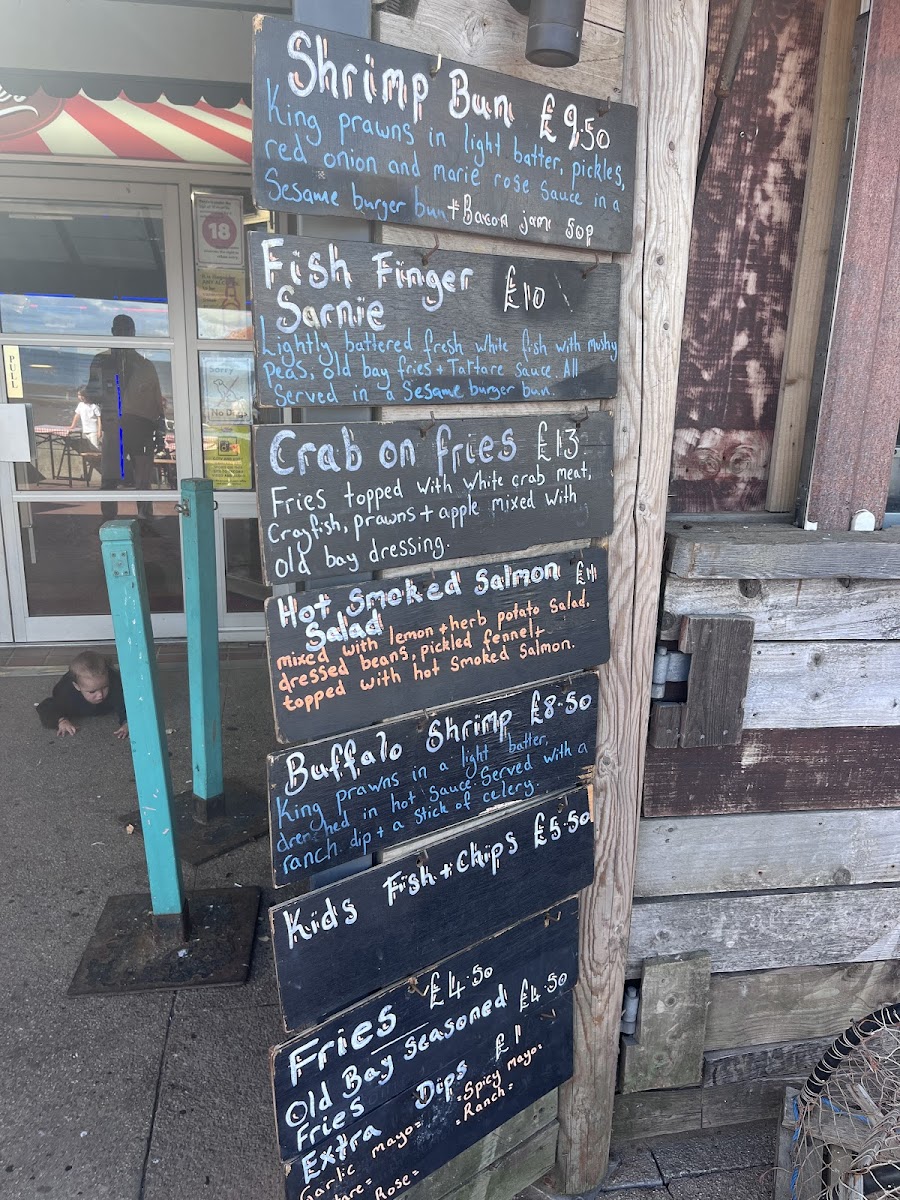 Shrimp Bun £9.50
King prawns in light batter, pickles,
red onion and marie rose sauce in a
Sesame burger bun + Bacon jam 50p
Fish Finger £10
Sarnie
Lightly battered fresh white fish with mushy
Peas, old bay fries + Tartare sauce. All
Served in a Sesame burger bun.
Crab on fries £13
Fries, topped with white crab meat,
Crayfish, prawns + apple mixed with
old bay dressing.
Hot Smoked Salmon
Salad
mixed with lemon + herb potato salad,
dressed beans, pickled fennel +
topped with hot smoked salmon.
Buffalo Shrimp £8.50
King prawns in a light batter,
drenched in hot sauce. Served with a
ranch dip + a stick of celery.
Kids Fish + Chips £5.50
Fries £4.50
Old Bay Seasoned £4.50
Fries
Extra Dips £1
Garlic mayo= =Spicy mayo=
=Ranch=
Rose=
PULL
18
Sorry
No Dogs